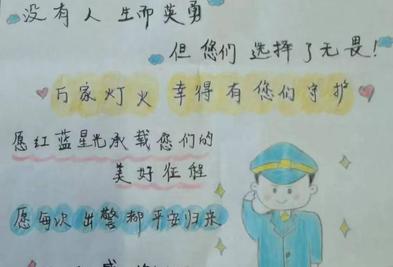 没有人生而英勇
但您们选择了无畏!
万家灯火 幸得有您们守护
愿红蓝星光承载您们的
美好征程
愿每次出警都平安归来